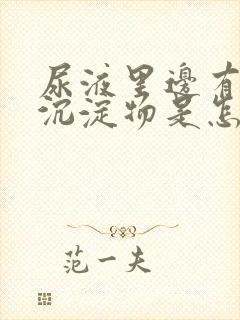 尿液里邊有
沉淀物是怎
范一夫